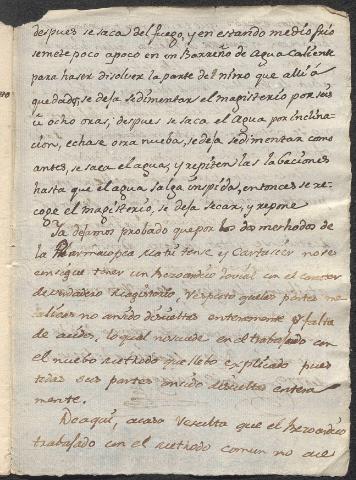 despues se saca del fuego, y en estando medio frio
se mete poco apoco en un Barreño de Agua Caliente
para haser disolver la parte del nitro que allí á
quedado, se deja sedimentar el magisterio por seis
ù ocho oras; despues se saca el Agua por inclina-
cion, echase otra nueba, se deja sedimentar como
antes, se saca el agua, y repiten las labaciones
hasta que el agua salga insipida, entonces se re-
coge el magisterio, se deja secar, y repone
Ya dejamos probado que por los dos methodos de
la y no se
consigue tener un Bezoardico Jovial con el
de verdadero Magisterio, respecto que las partes me-
talicas no an sido disueltas enteramente falta
de acido, lo qual no susede en el trabajado con
el nuebo methodo que llebo explicado pues
todas sus partes an sido disueltas entera
mente.
De aqui, acaso resulta que el Bezoardico
trabajado con el methodo comun no